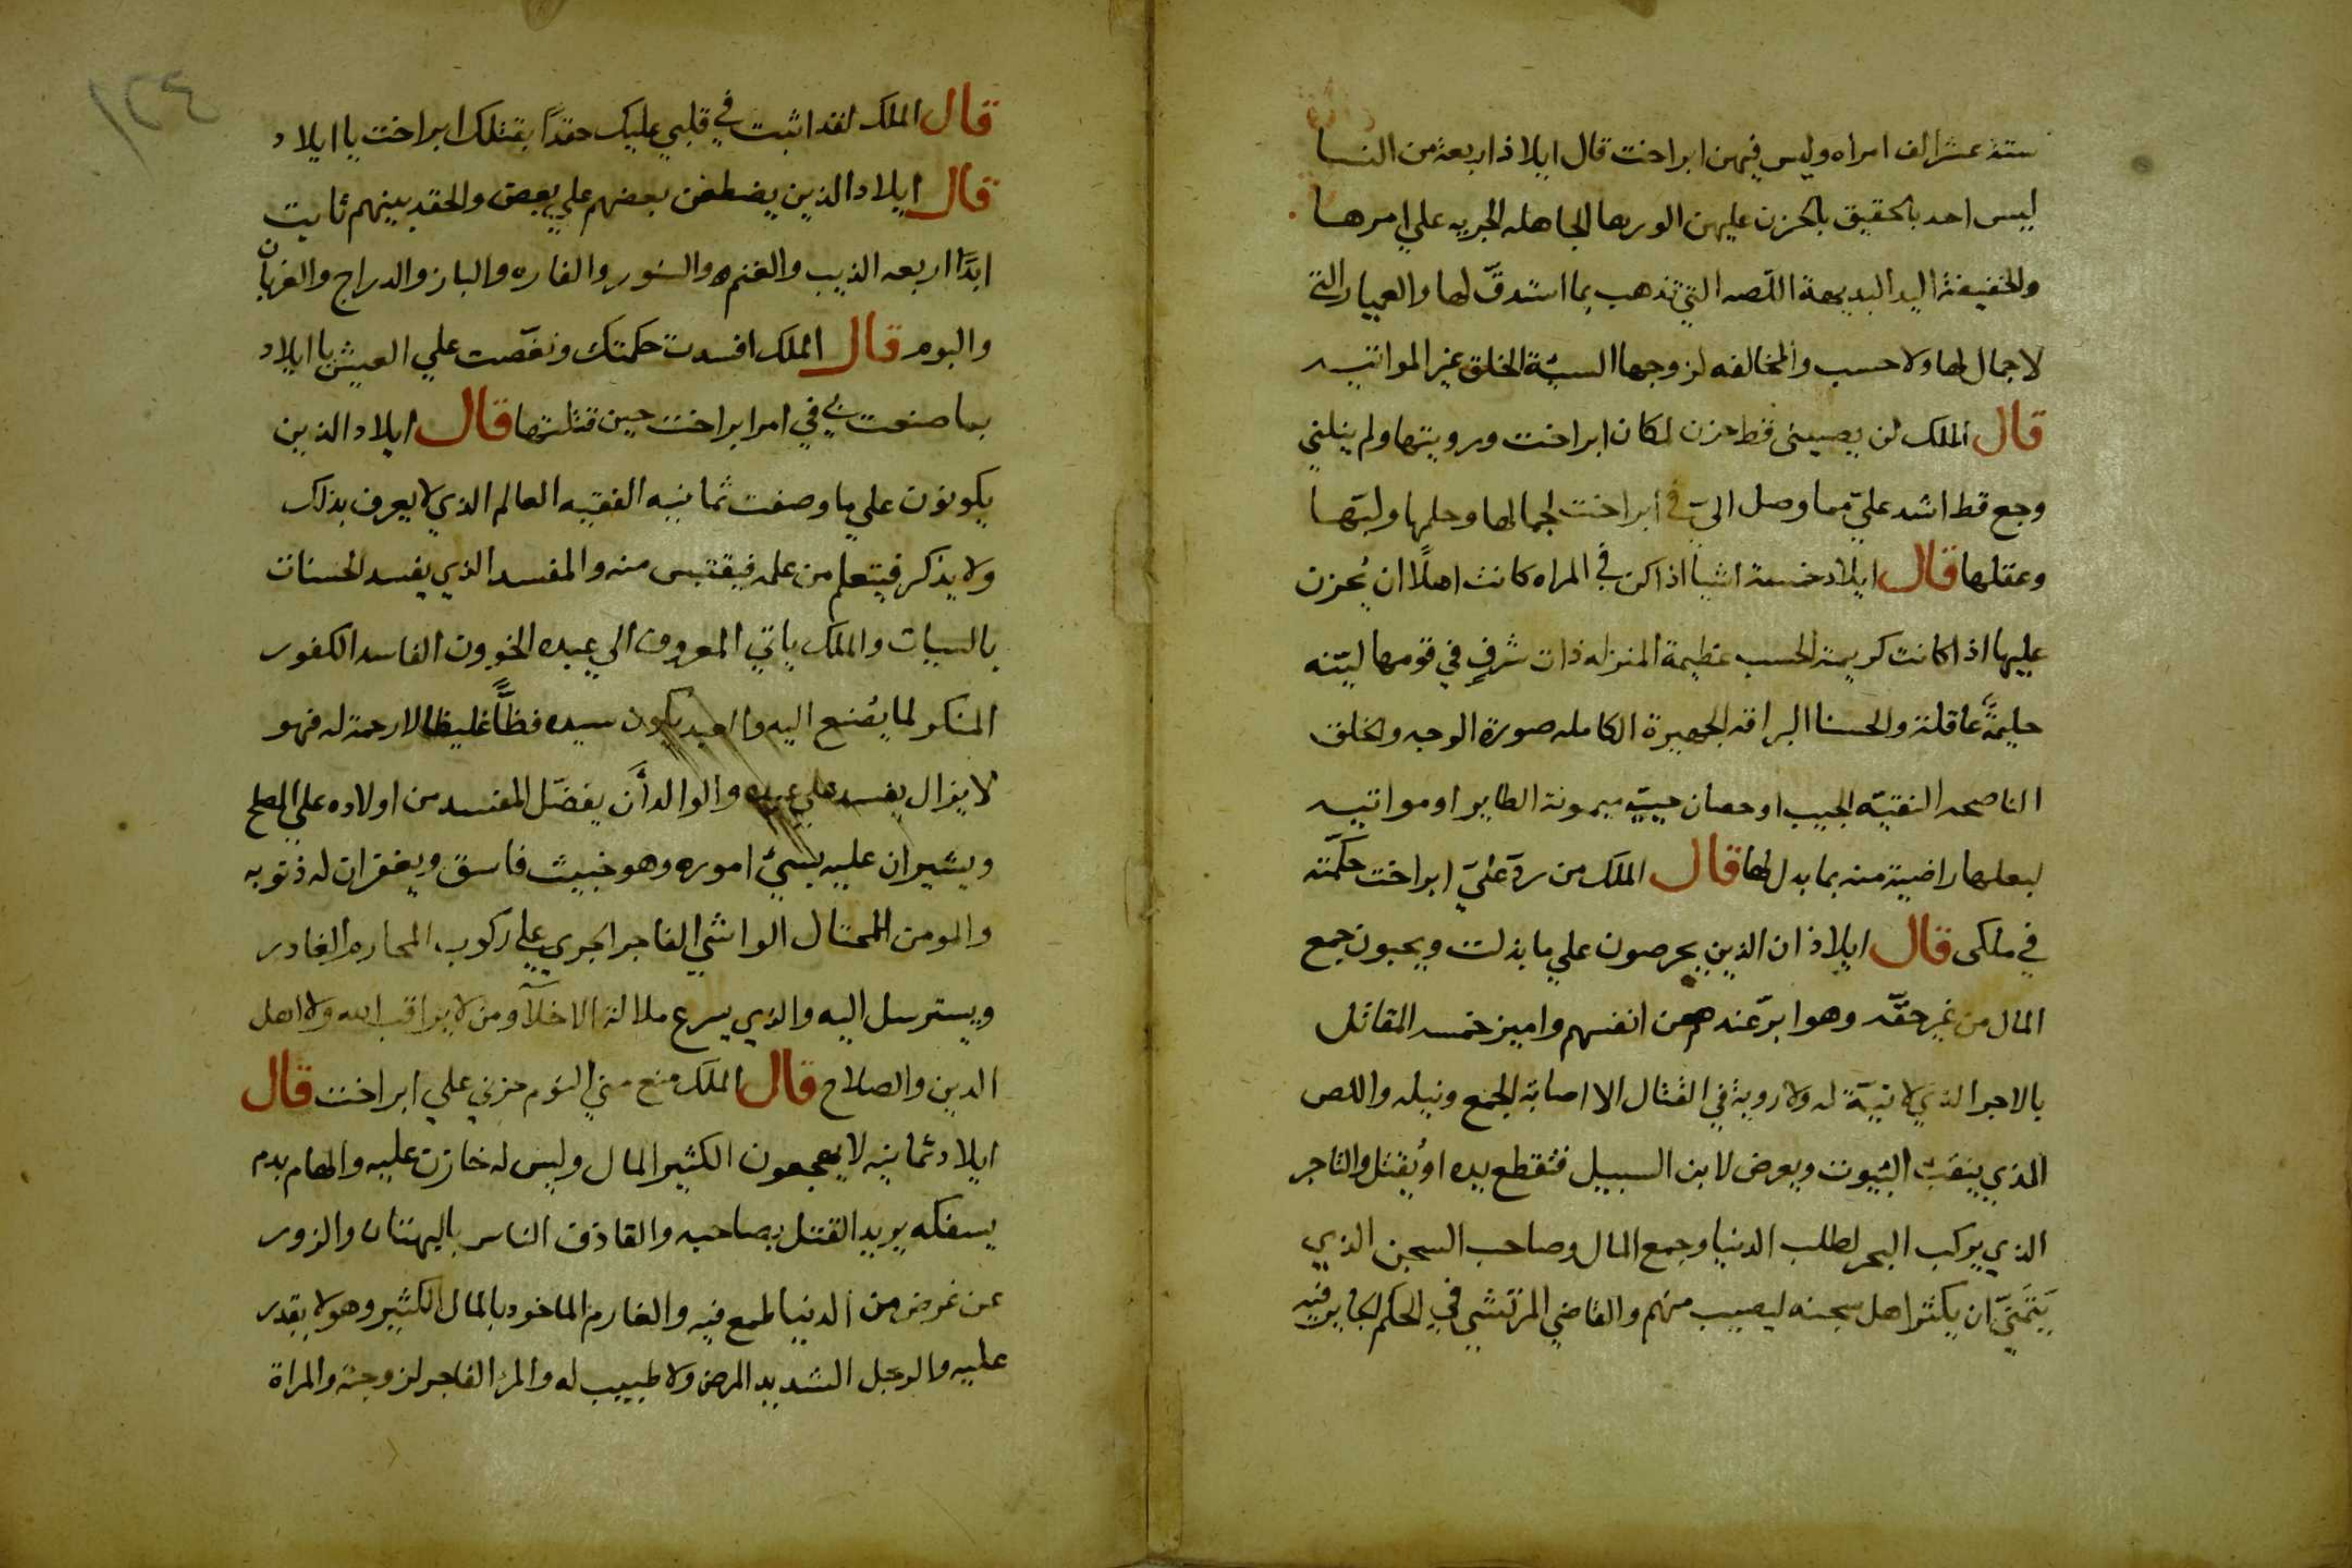 ستة عشر الف امراه وليس فيهن ابراخت قال ايلاذ اربعة من النسا
ليس احد بالحقيق بالحزن عليهن الورها الجاهله الجريه علي امرها
والخفيفة اليد البديهة اللصه التي تذهب بما استدق لها والعيار التي
لا جمال لها ولا حسب والمخالفه لزوجها السيئة الخلق غير المواتيه
قال الملك لن يصيبني قط حزن لمكان ابراخت ورويتها ولم ينلني
وجع قط اشد علي مما وصل الي في ابراخت لجمالها وحلمها ولبها
وعقلها قال ايلاد خمسة اشيا اذا كن في المراه كانت اهلا ان يحزن
عليها اذا كانت كريمة الحسب عظيمة المنزله ذات شرف في قومها لينه
حليمة عاقلة والحسنا البراقه الجهيرة الكامله صورة الوجه والخلق
الناصحه النقيه الجيب او حصان حييه ميمونة الطاير او مواتيه
لبعلها راضية منه بما بدل لها قال الملك من رد علي ابراخت حكمته
في ملكي قال ايلاذ ان الذين يحرصون علي ما بذلت ويحبون جمع
المال من غير حقه وهو ابر عندهم من انفسهم واميز خمسه المقاتل
بالاجر الذي لا نية له ولا روية في القتال الا اصابة الجمع ونيله واللص
الذي ينقب البيوت ويعرض لابن السبيل فتقطع يده او يقتل والتاجر
الذي يركب البحر لطلب الدنيا وجمع المال وصاحب السجن الذي
يتمني ان يكثر اهل سجنه ليصيب منهم والقاضي المرتشي في الحكم الجاير فيه
قال الملك لقد اثبت في قلبي عليك حقدا بقتلك ابراخت يا ايلاد
قال ايلاد الذين يضطغن بعضهم علي بعض والحقد بينهم ثابت
ابدا اربعه الذيب والغنم والسنور والفاره والباز والدراج والغربان
والبوم قال الملك افسدت حكمتك ونغصت علي العيش يا ايلاد
بما صنعت بي في امر ابراخت حين قتلتها قال ايلاد الذين
يكونون علي ما وصفت ثمانيه الفقيه العالم الذي لا يعرف بذلك
ولا يذكر فيتعلم من علمه فيقتبس منه والمفسد الذي يفسد الحسنات
بالسيات والملك ياتي المعروف الي عبده الخوون الفاسد الكفور
المنكر لما يصنع اليه والعبد يكون سيده فظا غليظا لا رحمة له فهو
لا يزال يفسد علي عبده والوالدان يفضل المفسد من اولاده علي المصلح
ويشيران عليه بسيئ اموره وهو خبيث فاسق ويغفران له ذنوبه
والمومن المحتال الواشي الفاجر الجري علي ركوب المحارم الغادر
ويسترسل اليه والذي يسرع ملالة الاخلا ومن لا يراقب الله ولا اهل
الدين والصلاح قال الملك منع مني النوم حزني علي ابراخت قال
ايلاد ثمانيه لا يهجعون الكثير المال وليس له خازن عليه والهام بدم
يسفكه يريد القتل بصاحبه والقاذف الناس بالبهتان والزور
عن غرض من الدنيا طمع فيه والغارم الماخود بالمال الكثير وهو لا يقدر
عليه والرجل الشديد المرض ولا طبيب له والمر الفاجر لزوجته والمراة